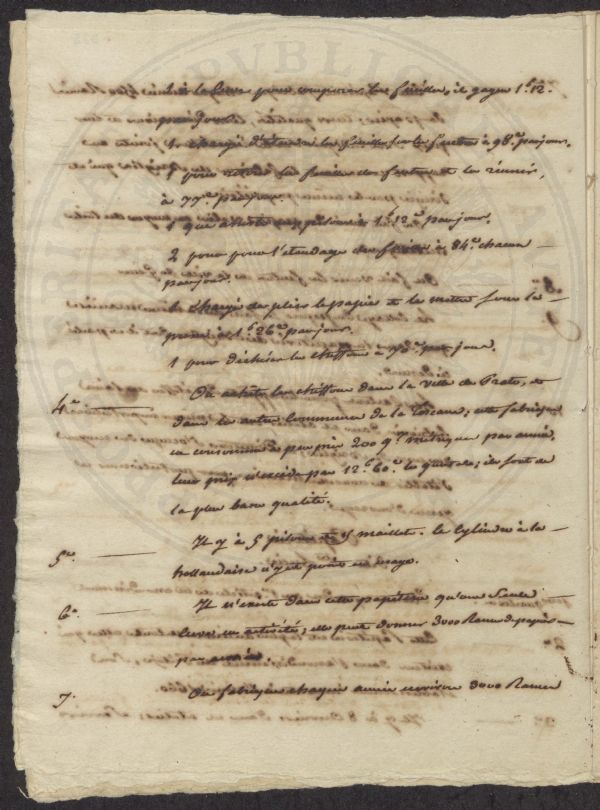 à la Cuve pour composer les feuilles, il gagne 1.f 12.c
par jour.
1 chargé d'étendre les feuilles sur les feutres à 98.c par jour.
1 pour retirer les feuilles des feutres et les réunir,
à 77.c par jour.
1 que à 1.f 12.c par jour.
2 pour pour l'étendage des feuilles à 84.c chacun
par jour.
1 chargé de plier le papier et le mettre sous la
presse à 1.f 26.c par jour.
1 pour déchirer les chiffons à 70.c par jour.
4.e On achète les chiffons dans la ville de Prato, et
dans les autres Communes de la Toscane; cette fabrique
en consomme à peu près 200 q.x métriques par année,
leur prix n'excède pas 12.f 60.c le quintal; ils sont de
la plus basse qualité.
5.e Il y à 5 pilons et 15 maillets. le Cylindre à la
hollandaise n'y est point en usage.
6.e Il n'existe dans cette papéterie qu'une seule
Cuve en activité; elle peut donner 3000 Rames de papier
par année.
7. On fabrique chaque année environ 3000 Rames